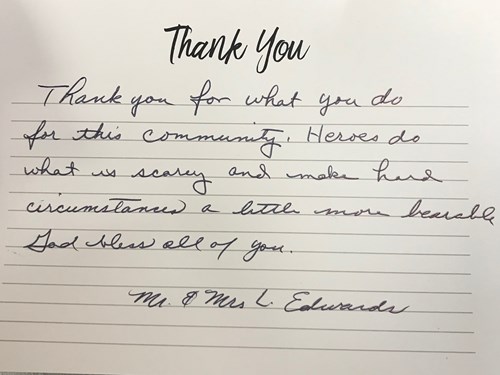 Thank You
Thank you for what you do
for this community. Heroes do
what is scarey and make hard
circumstances a little more bearable
God bless all of you.
Mr. & Mrs L. Edwards